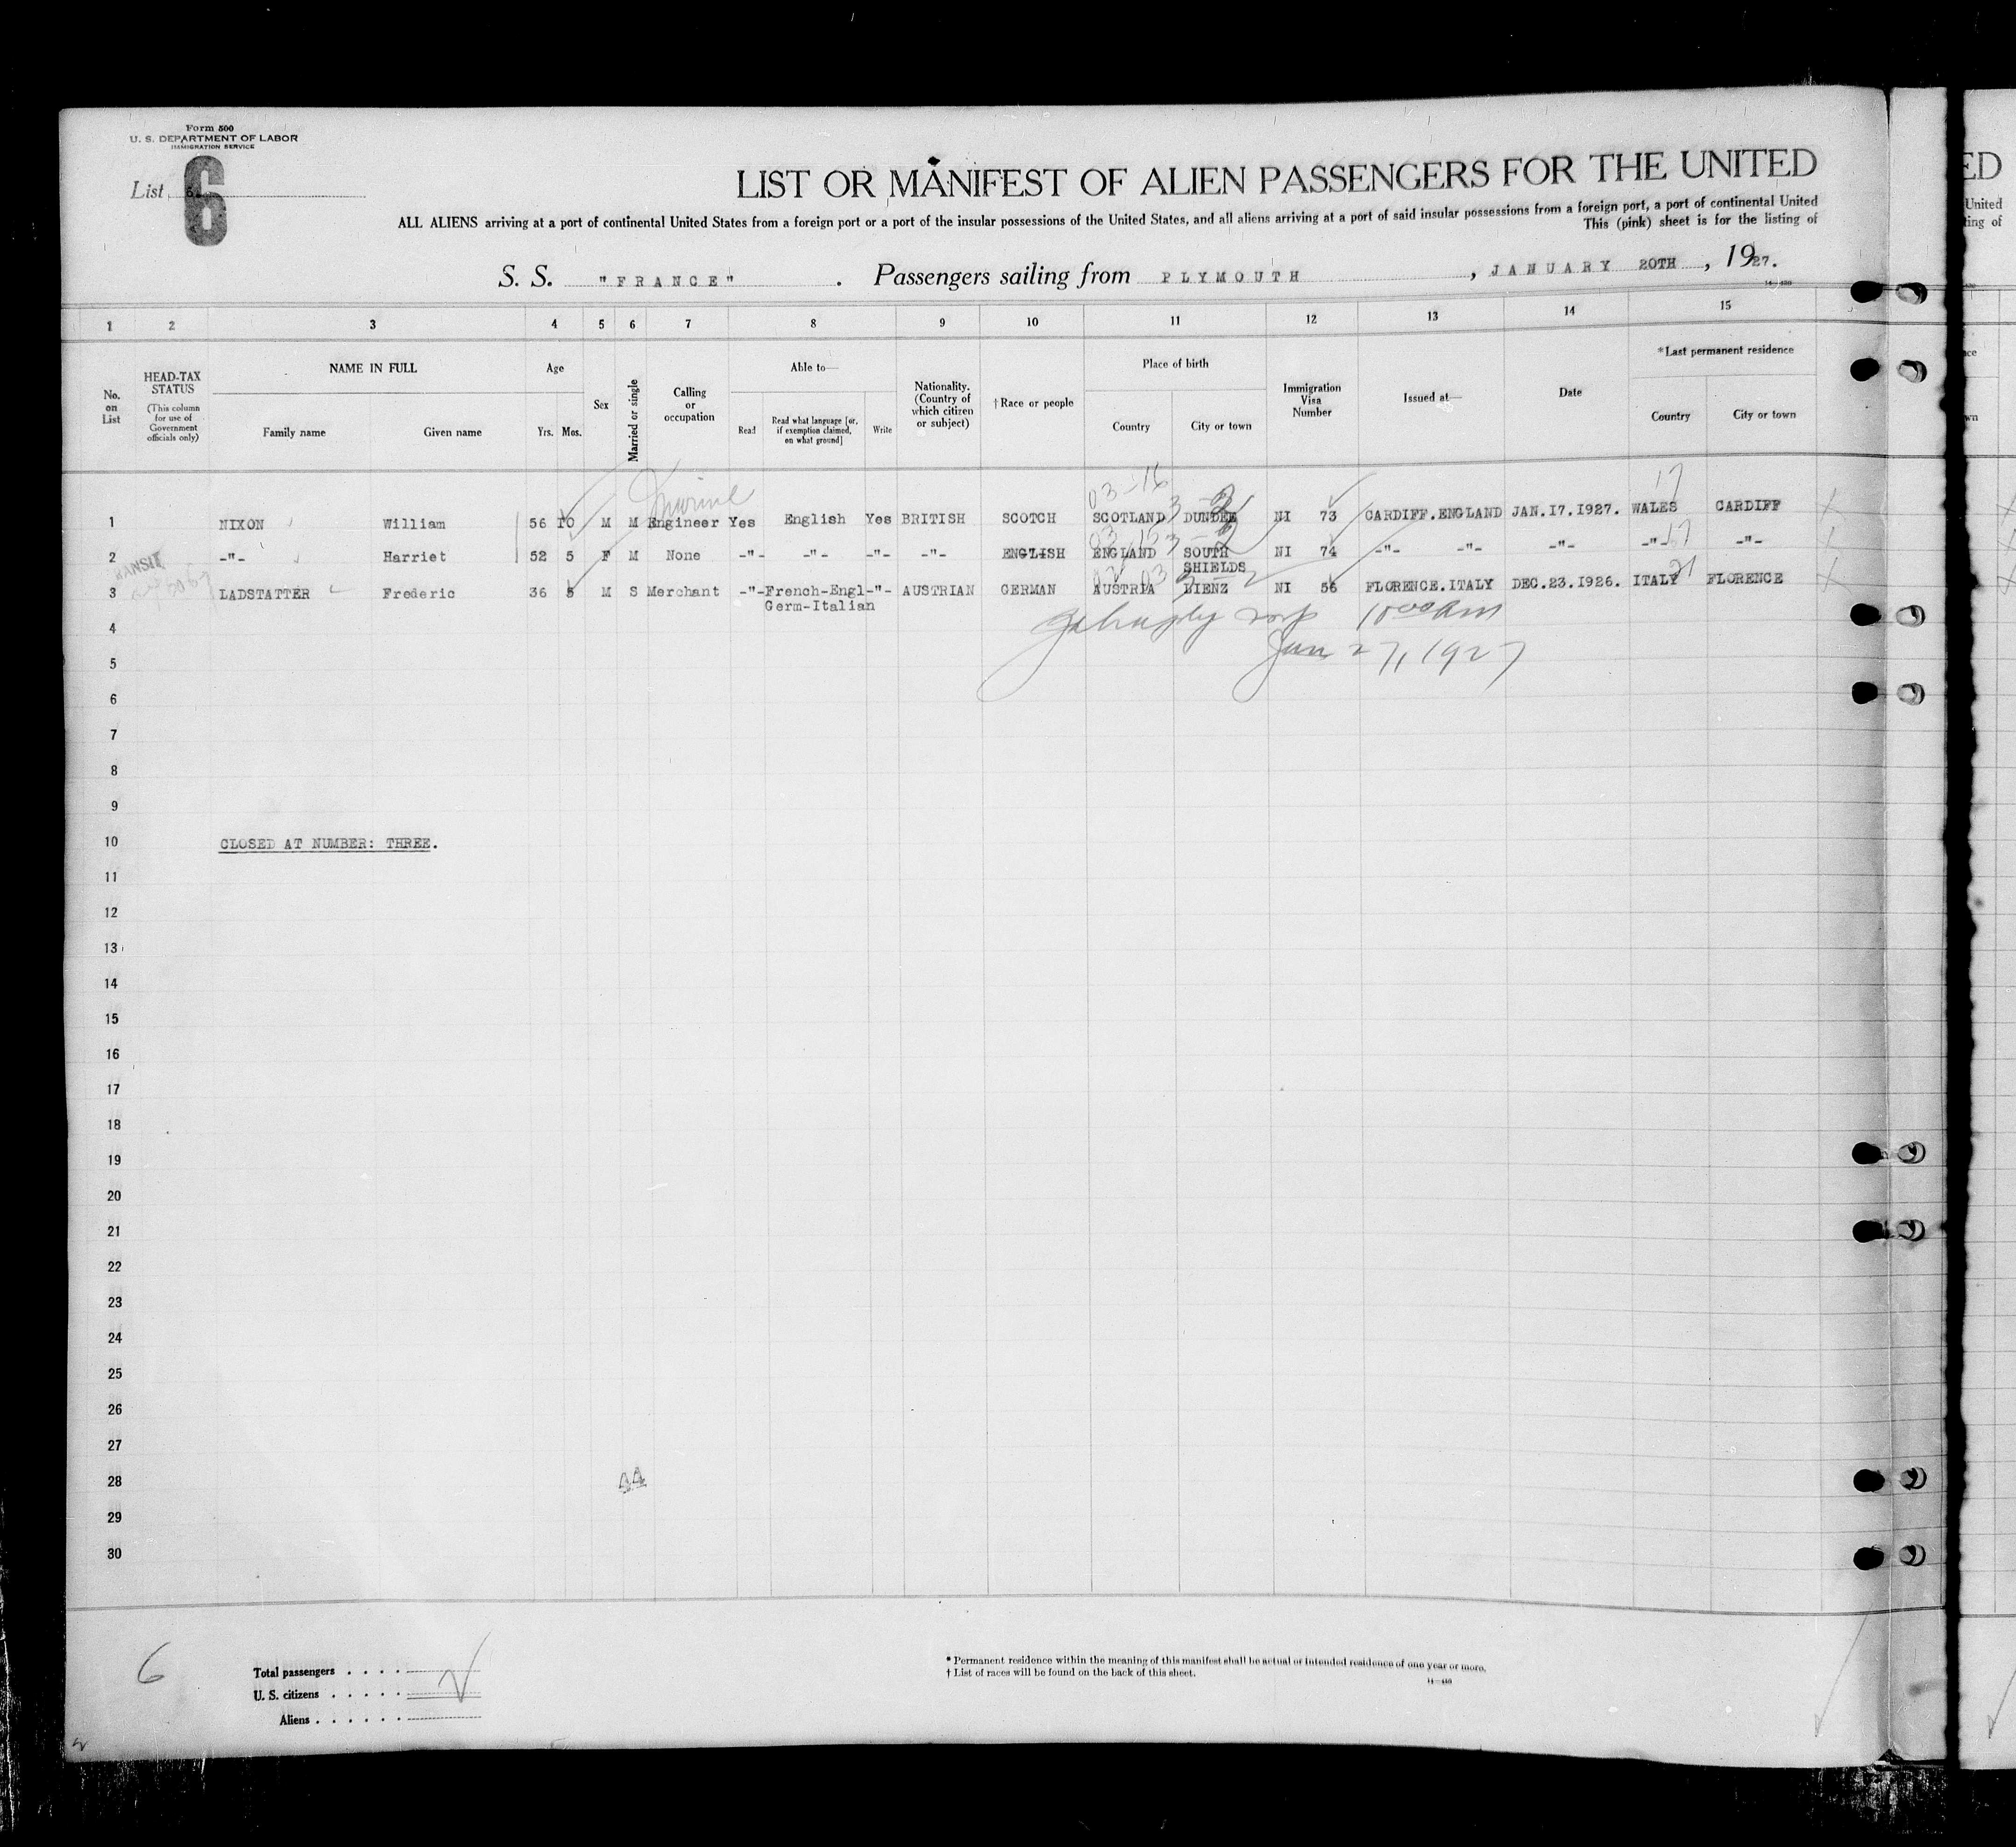 Form 500
U. S. DEPARTMENT OF LABOR
IMMIGRATION SERVICE
List 6
LIST OR MANIFEST OF ALIEN PASSENGERS FOR THE UNITED
ALL ALIENS arriving at a port of continental United States from a foreign port or a port of the insular possessions of the United States, and all aliens arriving at a port of said insular possessions from a foreign port, a port of continental United
This (pink) sheet is for the listing of
S. S. "FRANCE" . Passengers sailing from PLYMOUTH , JANUARY 20TH , 1927.
1 2 3 4 5 6 7 8 9 10 11 12 13 14 15
No. on List
HEAD-TAX STATUS
(This column for use of Government officials only)
NAME IN FULL
Family name Given name
Age
Yrs. Mos.
Sex
Married or single
Calling or occupation
Able to—
Read
Read what language [or, if exemption claimed, on what ground]
Write
Nationality. (Country of which citizen or subject)
†Race or people
Place of birth
Country City or town
Immigration Visa Number
Issued at—
Date
*Last permanent residence
Country City or town
03-16 17
Marine
1 NIXON William 56 10 M M Engineer Yes English Yes BRITISH SCOTCH SCOTLAND DUNDEE NI 73 CARDIFF.ENGLAND JAN.17.1927. WALES CARDIFF
2 -"- Harriet 52 5 F M None -"- -"- -"- -"- ENGLISH ENGLAND SOUTH SHIELDS NI 74 -"- -"- -"- -"- 17 -"-
3 LADSTATTER Frederic 36 5 M S Merchant -"- French-Engl -"- AUSTRIAN GERMAN AUSTRIA LIENZ NI 56 FLORENCE.ITALY DEC.23.1926. ITALY 21 FLORENCE
Germ-Italian
4 1000 am
5 Jan 27, 1927
6
7
8
9
10 CLOSED AT NUMBER: THREE.
11
12
13
14
15
16
17
18
19
20
21
22
23
24
25
26
27
28
29
30
6
Total passengers
U. S. citizens
Aliens
* Permanent residence within the meaning of this manifest shall be actual or intended residence of one year or more.
† List of races will be found on the back of this sheet.
ED
United
ting of